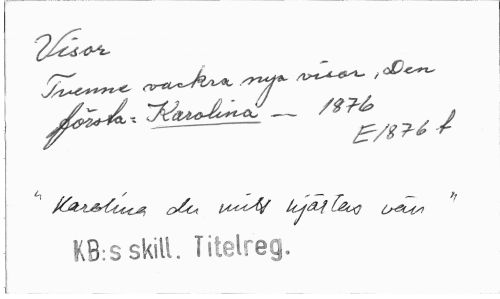 Visor
Tvenne vackra nya visor, Den
första: Karolina — 1876
E1876 t
" Karolina du mitt hjärtas vän "
KB:s skill. Titelreg.